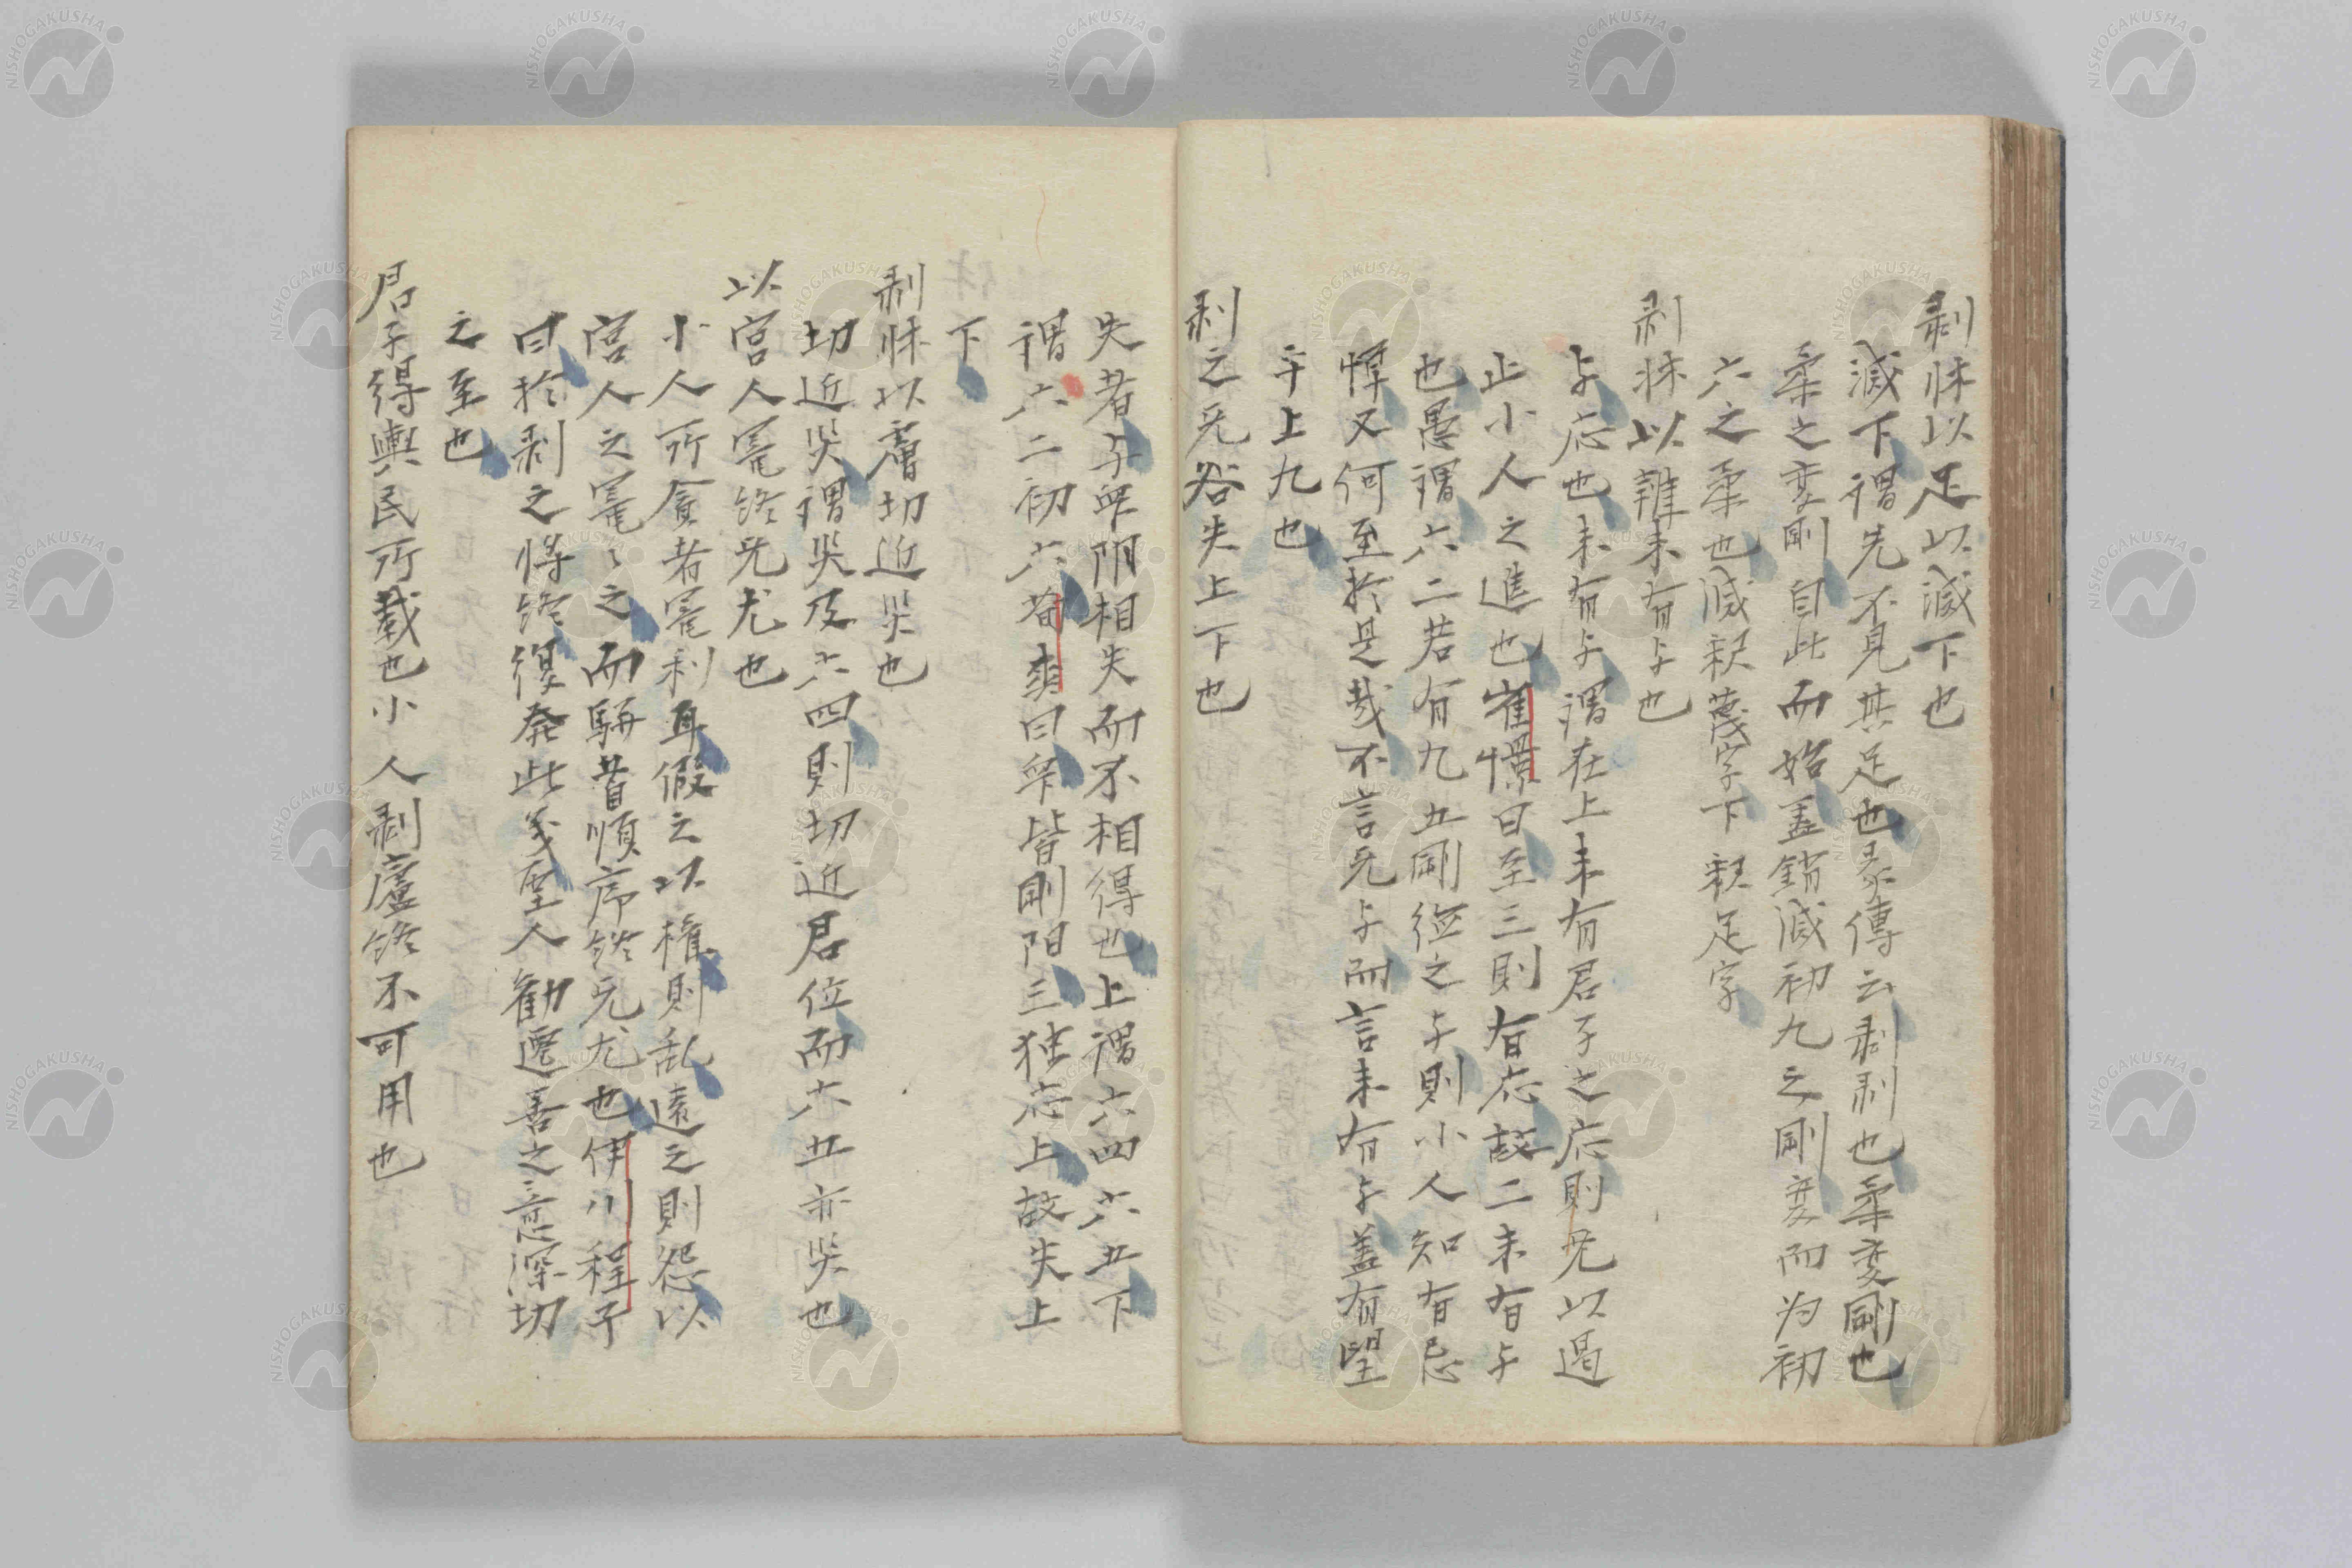 剥牀以足以滅下也
滅下謂先不見其足也彖傳云剥剥也柔变剛也
柔之変剛自此而始蓋銷滅初九之剛変而为初
六之柔也滅釈蔑字下釈足字
剥牀以辨未有与也
与応也未有与謂在上未有君子之応則无以遏
止小人之進也崔憬曰至三則有応故二未有与
也愚謂六二若有九五剛徑之与則小人知有忌
憚又何至於是哉不言无与而言未有与蓋有望
于上九也
剥之无咎失上下也
失者与眾阴相失而不相得也上謂六四六五下
謂六二初六荀爽曰眾皆剛阳三独応上故失上
下
剥牀以膚切近災也
切近災謂災及六四則切近君位而六五亦災也
以宮人寵終无尤也
小人所貪者寵利耳假之以権則乱遠之則怨以
宮人之寵々之而駢首順序終无尤也伊川程子
曰於剥之将終復発此义聖人勧遷善之意深切
之至也
君子得輿民所載也小人剥廬終不可用也
NISHOGAKUSHA